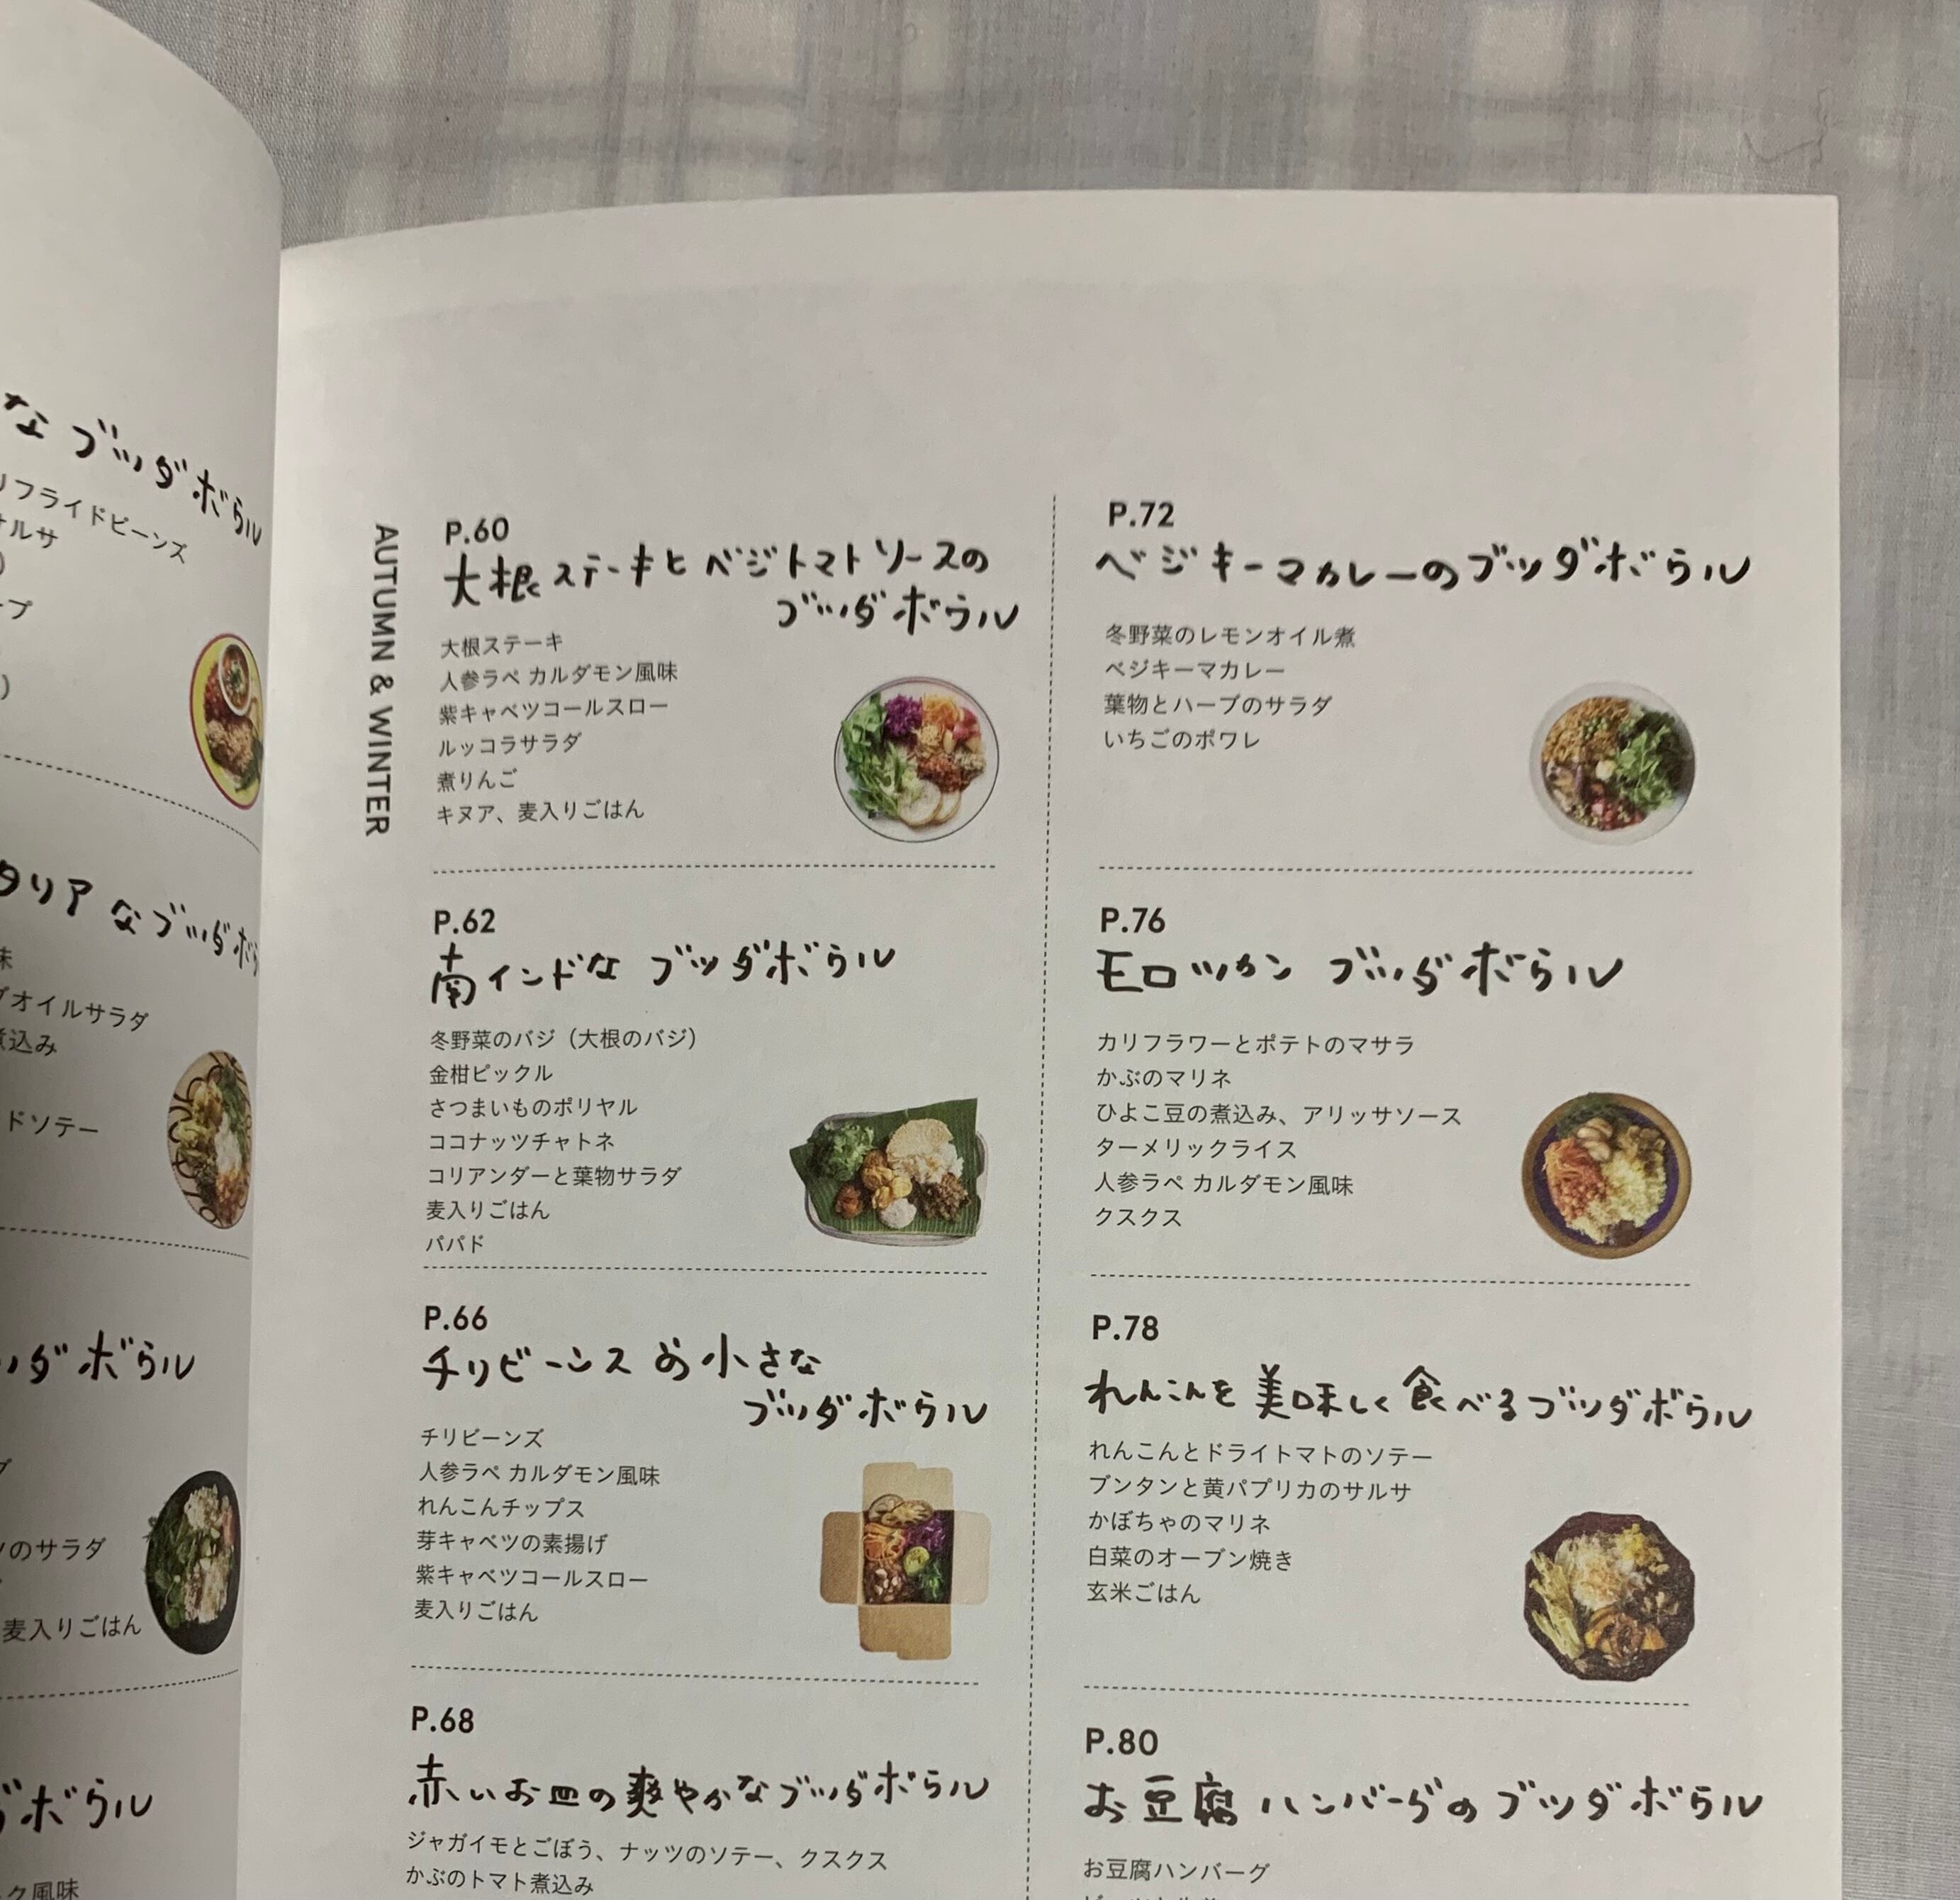 な ブッダボウル
リフライドビーンズ
サルサ
タリア なブッダボウ
味
オイルサラダ
煮込み
ドソテー
ッダボウル
のサラダ
麦入りごはん
ボウル
ク風味
AUTUMN & WINTER
P.60
大根ステーキとベジトマトソースの
ブッダボウル
大根ステーキ
人参ラペ カルダモン風味
紫キャベツコールスロー
ルッコラサラダ
煮りんご
キヌア、麦入りごはん
P.62
南インドな ブッダボウル
冬野菜のバジ（大根のバジ）
金柑ピックル
さつまいものポリヤル
ココナッツチャトネ
コリアンダーと葉物サラダ
麦入りごはん
パパド
P.66
チリビーンズの小さな
ブッダボウル
チリビーンズ
人参ラペ カルダモン風味
れんこんチップス
芽キャベツの素揚げ
紫キャベツコールスロー
麦入りごはん
P.68
赤いお皿の爽やかなブッダボウル
ジャガイモとごぼう、ナッツのソテー、クスクス
かぶのトマト煮込み
P.72
ベジキーマカレーのブッダボウル
冬野菜のレモンオイル煮
ベジキーマカレー
葉物とハーブのサラダ
いちごのポワレ
P.76
モロッカン ブッダボウル
カリフラワーとポテトのマサラ
かぶのマリネ
ひよこ豆の煮込み、アリッサソース
ターメリックライス
人参ラペ カルダモン風味
クスクス
P.78
れんこんを美味しく食べるブッダボウル
れんこんとドライトマトのソテー
ブンタンと黄パプリカのサルサ
かぼちゃのマリネ
白菜のオーブン焼き
玄米ごはん
P.80
お豆腐ハンバーグのブッダボウル
お豆腐ハンバーグ